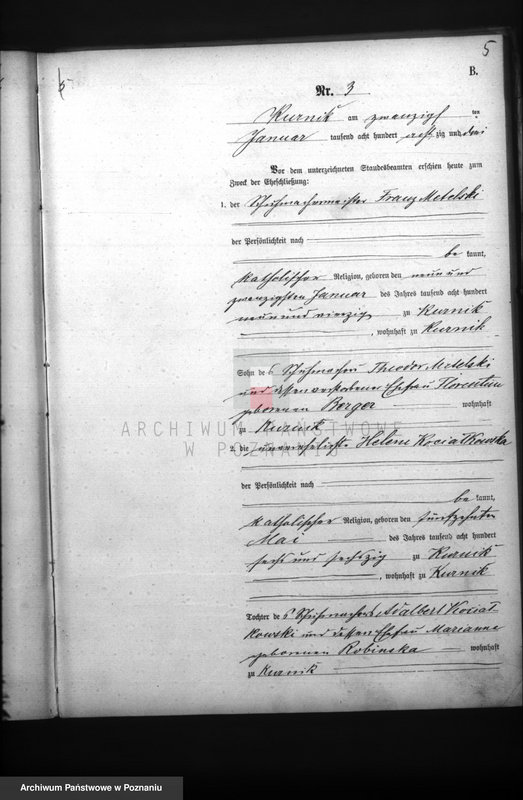 5
B.
Nr. 3
Kurnik am zwanzigsten
Januar tausend acht hundert acht zig und drei
Vor dem unterzeichneten Standesbeamten erschien heute zum
Zweck der Eheschließung:
1. der Schuhmachermeister Franz Metelski
der Persönlichkeit nach
be kannt,
katholischer Religion, geboren den neun und
zwanzigsten Januar des Jahres tausend acht hundert
neun und vierzig zu Kurnik
, wohnhaft zu Kurnik
Sohn des Schuhmachers Theodor Metelski
und dessen verstorbenen Ehefrau Florentine
geborenen Berger wohnhaft
zu Kurnik
ARCHIWUM PAŃSTWOWE
W POZNANIU
2. die unverehelichte Helene Kociałkowska
der Persönlichkeit nach
be kannt,
katholischer Religion, geboren den fünfzehnten
Mai des Jahres tausend acht hundert
sechs und sechszig zu Kurnik
, wohnhaft zu Kurnik
Tochter des Schuhmachers Adalbert Kociał-
kowski und dessen Ehefrau Marianna
geborenen Robinska wohnhaft
zu Kurnik
Archiwum Państwowe w Poznaniu